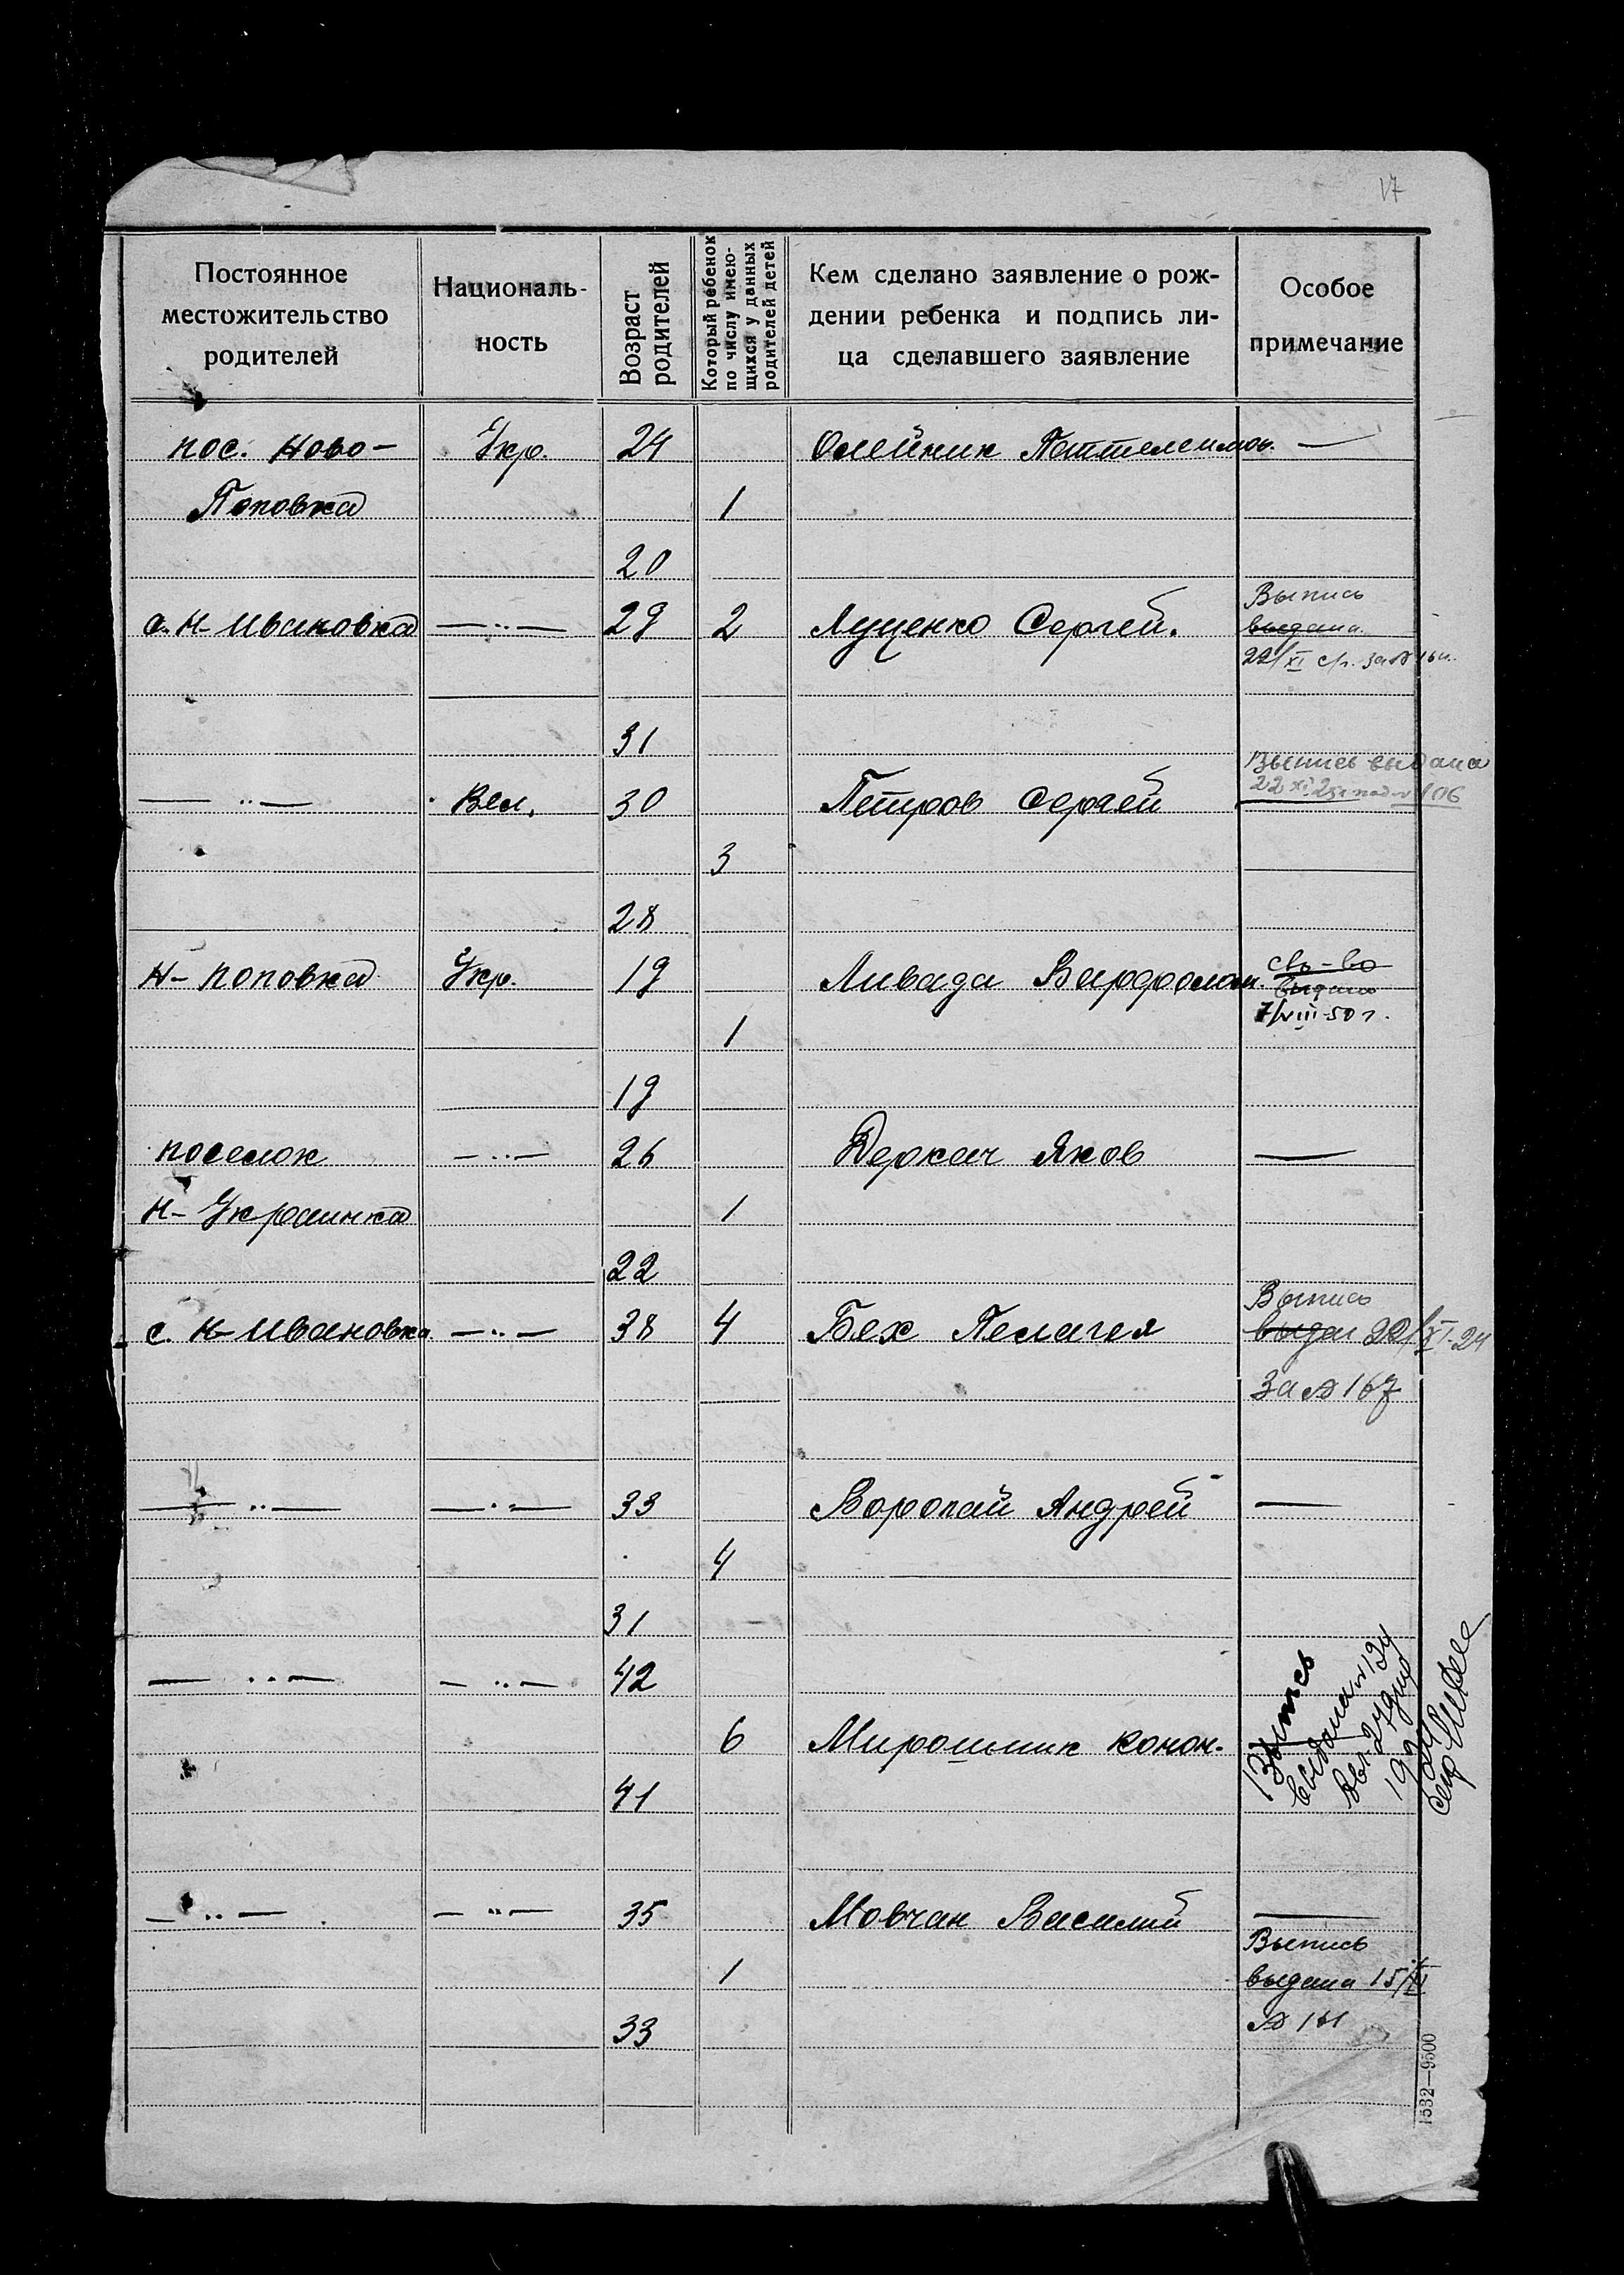 17
Постоянное местожительство родителей
Националь-ность
Возраст родителей
Который ребенок по числу имею-щихся у данных родителей детей
Кем сделано заявление о рож-дении ребенка и подпись ли-ца сделавшего заявление
Особое примечание
пос. Ново- Укр. 24 Олейник —
Поповка 1
20
с. Н-Ивановка —"— 29 2 Луценко Сергей. Выпись
выдана
22/XI
31
—"— Вел. 30 Петров Сергей Выпись выдана
22 XI 106
3
28
Н-Поповка Укр. 19 Ливада Варфолом. св-во
выдано
7/VIII-50 г.
1
19
поселок —"— 26 Деркач Яков —
Н-Украинка 1
22
с. Н-Ивановка —"— 38 4 Бех Пелагея Выпись
выдан 22/XI-24
За № 167
—"— —"— 33 Воропай Андрей —
4
31
—"— —"— 42 Выпись
выдана № 134
6 Мирошник Конон.
41
—"— —"— 35 Мовчан Василий —
Выпись
1 выдана 15/XI
33 № 161
1532—9500